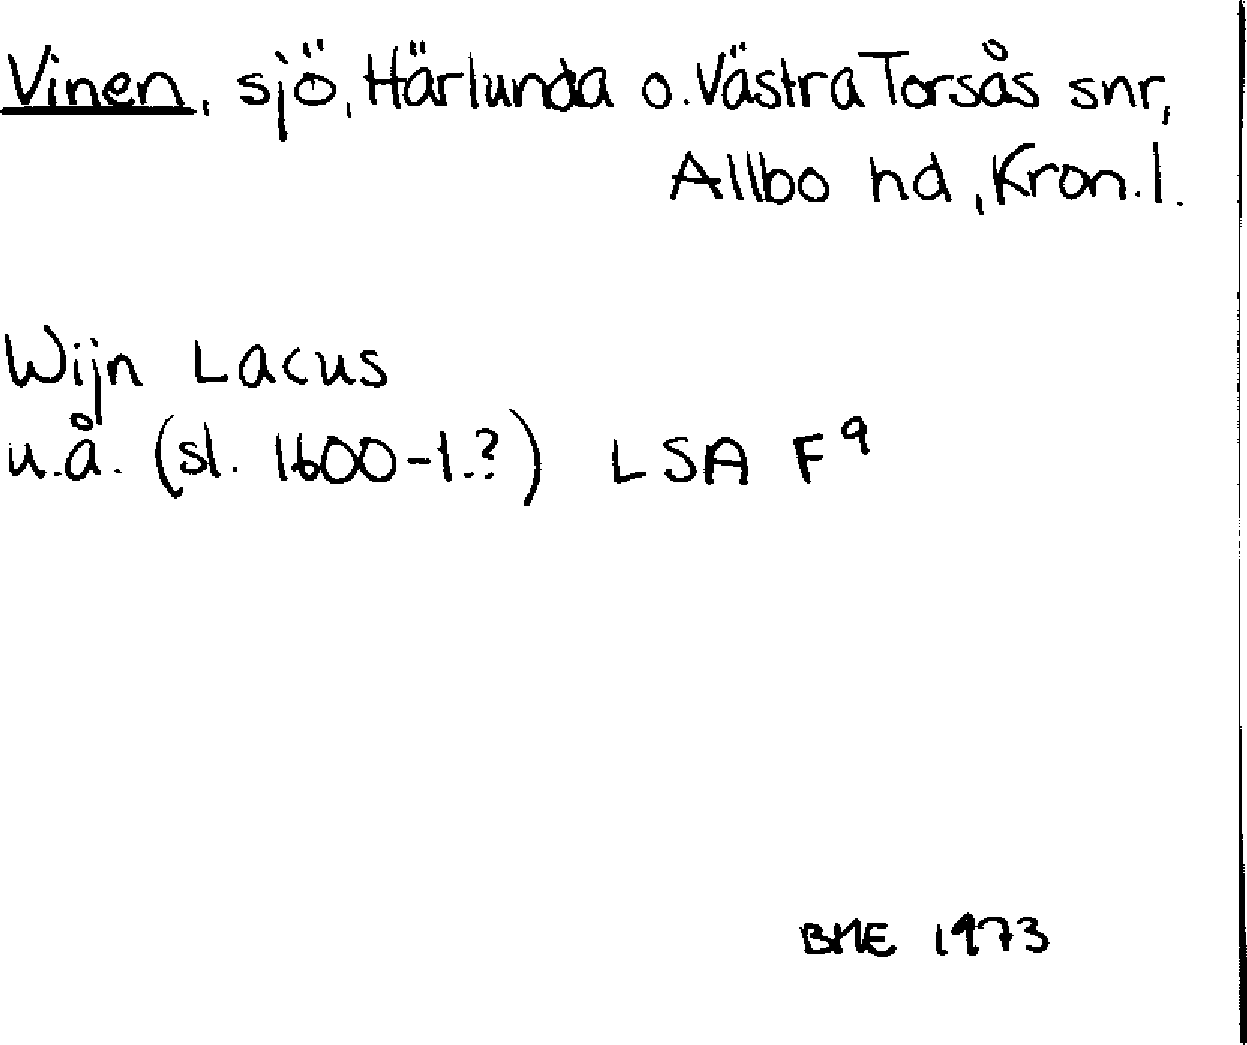 Vinen, sjö, Härlunda o. Västra Torsås snr,
Allbo hd, Kron. l.
Wijn Lacus
u.å. (sl. 1600-t.?) LSA F⁹
BME 1973